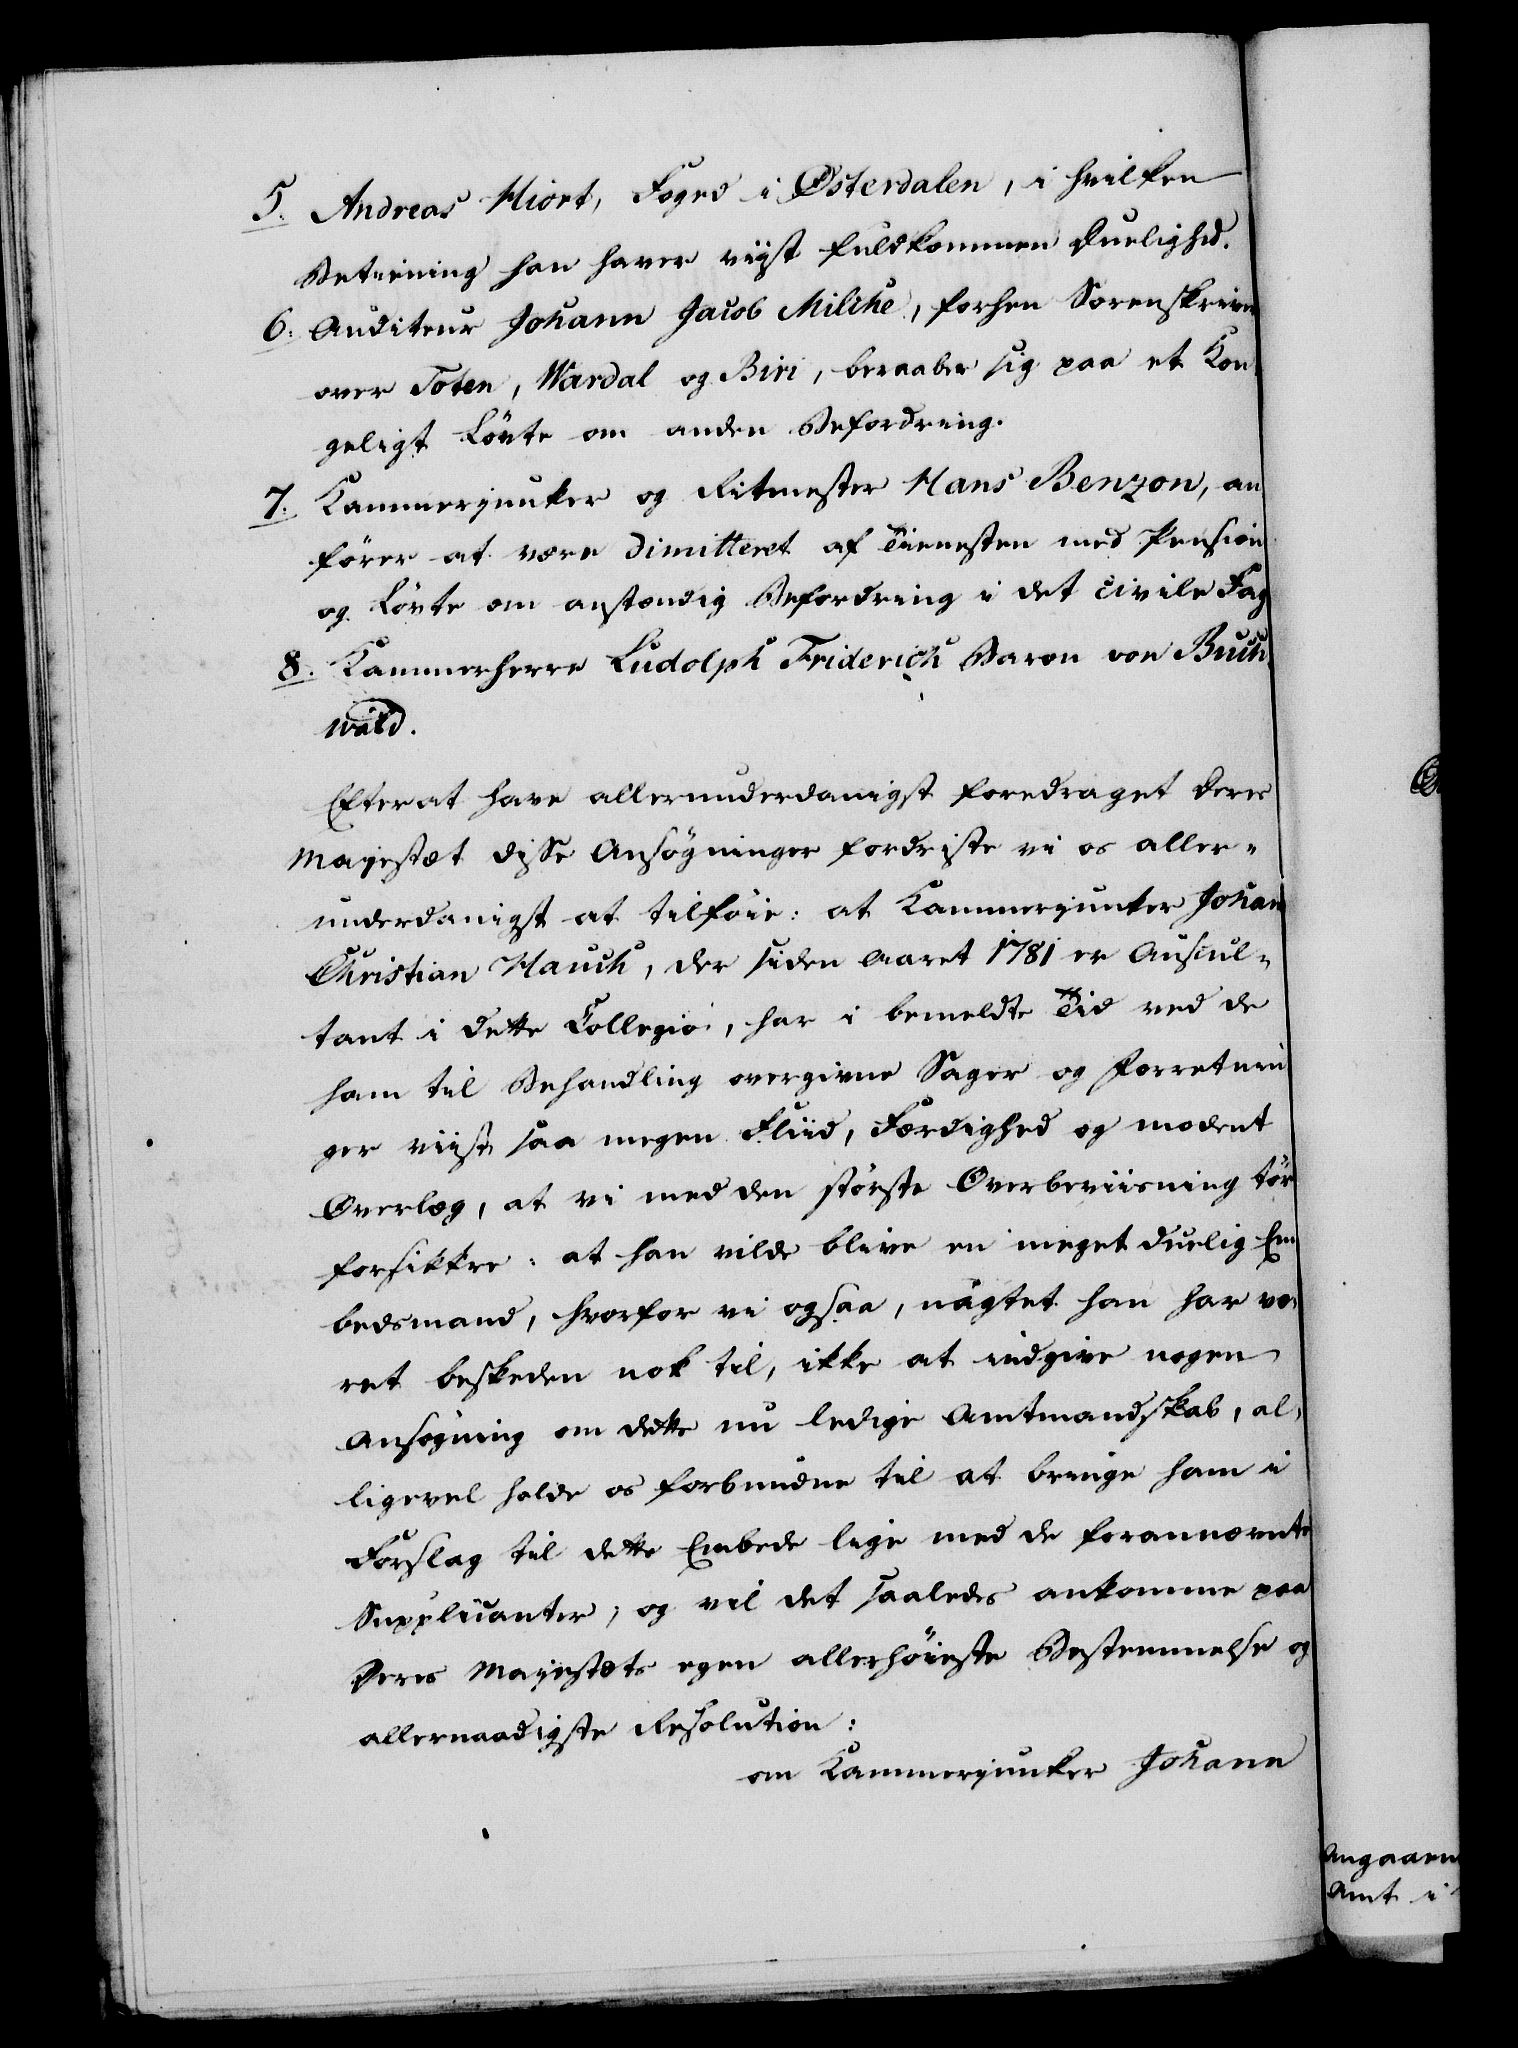 5. Andreas Hiort, Foged i Østerdalen, i hvilken
Betiening han haver viist fuldkommen Duelighed.
6. Auditeur Johann Jacob Milche, forhen Sorenskriver
over Toten, Wardal og Biri, beraaber sig paa et Kon-
geligt Løvte om anden Befordring.
7. Kammerjunker og Ritmester Hans Benzon, an
fører at være dimitteret af Tienesten med Pension
og Løvte om anstændig Befordring i det civile Fag
8. Kammerherre Ludolph Friderich Baron von Buch-
wald.
Efterat have allerunderdanigst foredraget Deres
Majestæt disse Ansøgninger fordriste vi os aller-
underdanigst at tilføie: at Kammerjunker Johan
Christian Hauch, der siden Aaret 1781 er Auscul-
tant i dette Collegio, har i bemeldte Tid ved de
ham til Behandling overgivne Sager og Forretnin
ger viist saa megen Fliid, Færdighed og modent
Overlæg, at vi med den største Overbeviisning tør
forsikkre: at han vilde blive en meget duelig Em
bedsmand, hvorfor vi ogsaa, uagtet han har væ-
ret beskeden nok til, ikke at indgive nogen
Ansøgning om dette nu ledige Amtmandskab, al-
ligevel holde os forbundne til at bringe ham i
Forslag til dette Embede lige med de forannævnte
Supplicanter; og vil det saaledes ankomme paa
Deres Majestæts egen allerhøieste Bestemmelse og
allernaadigste Resolution:
om Kammerjunker Johann
Angaaen
Amt i